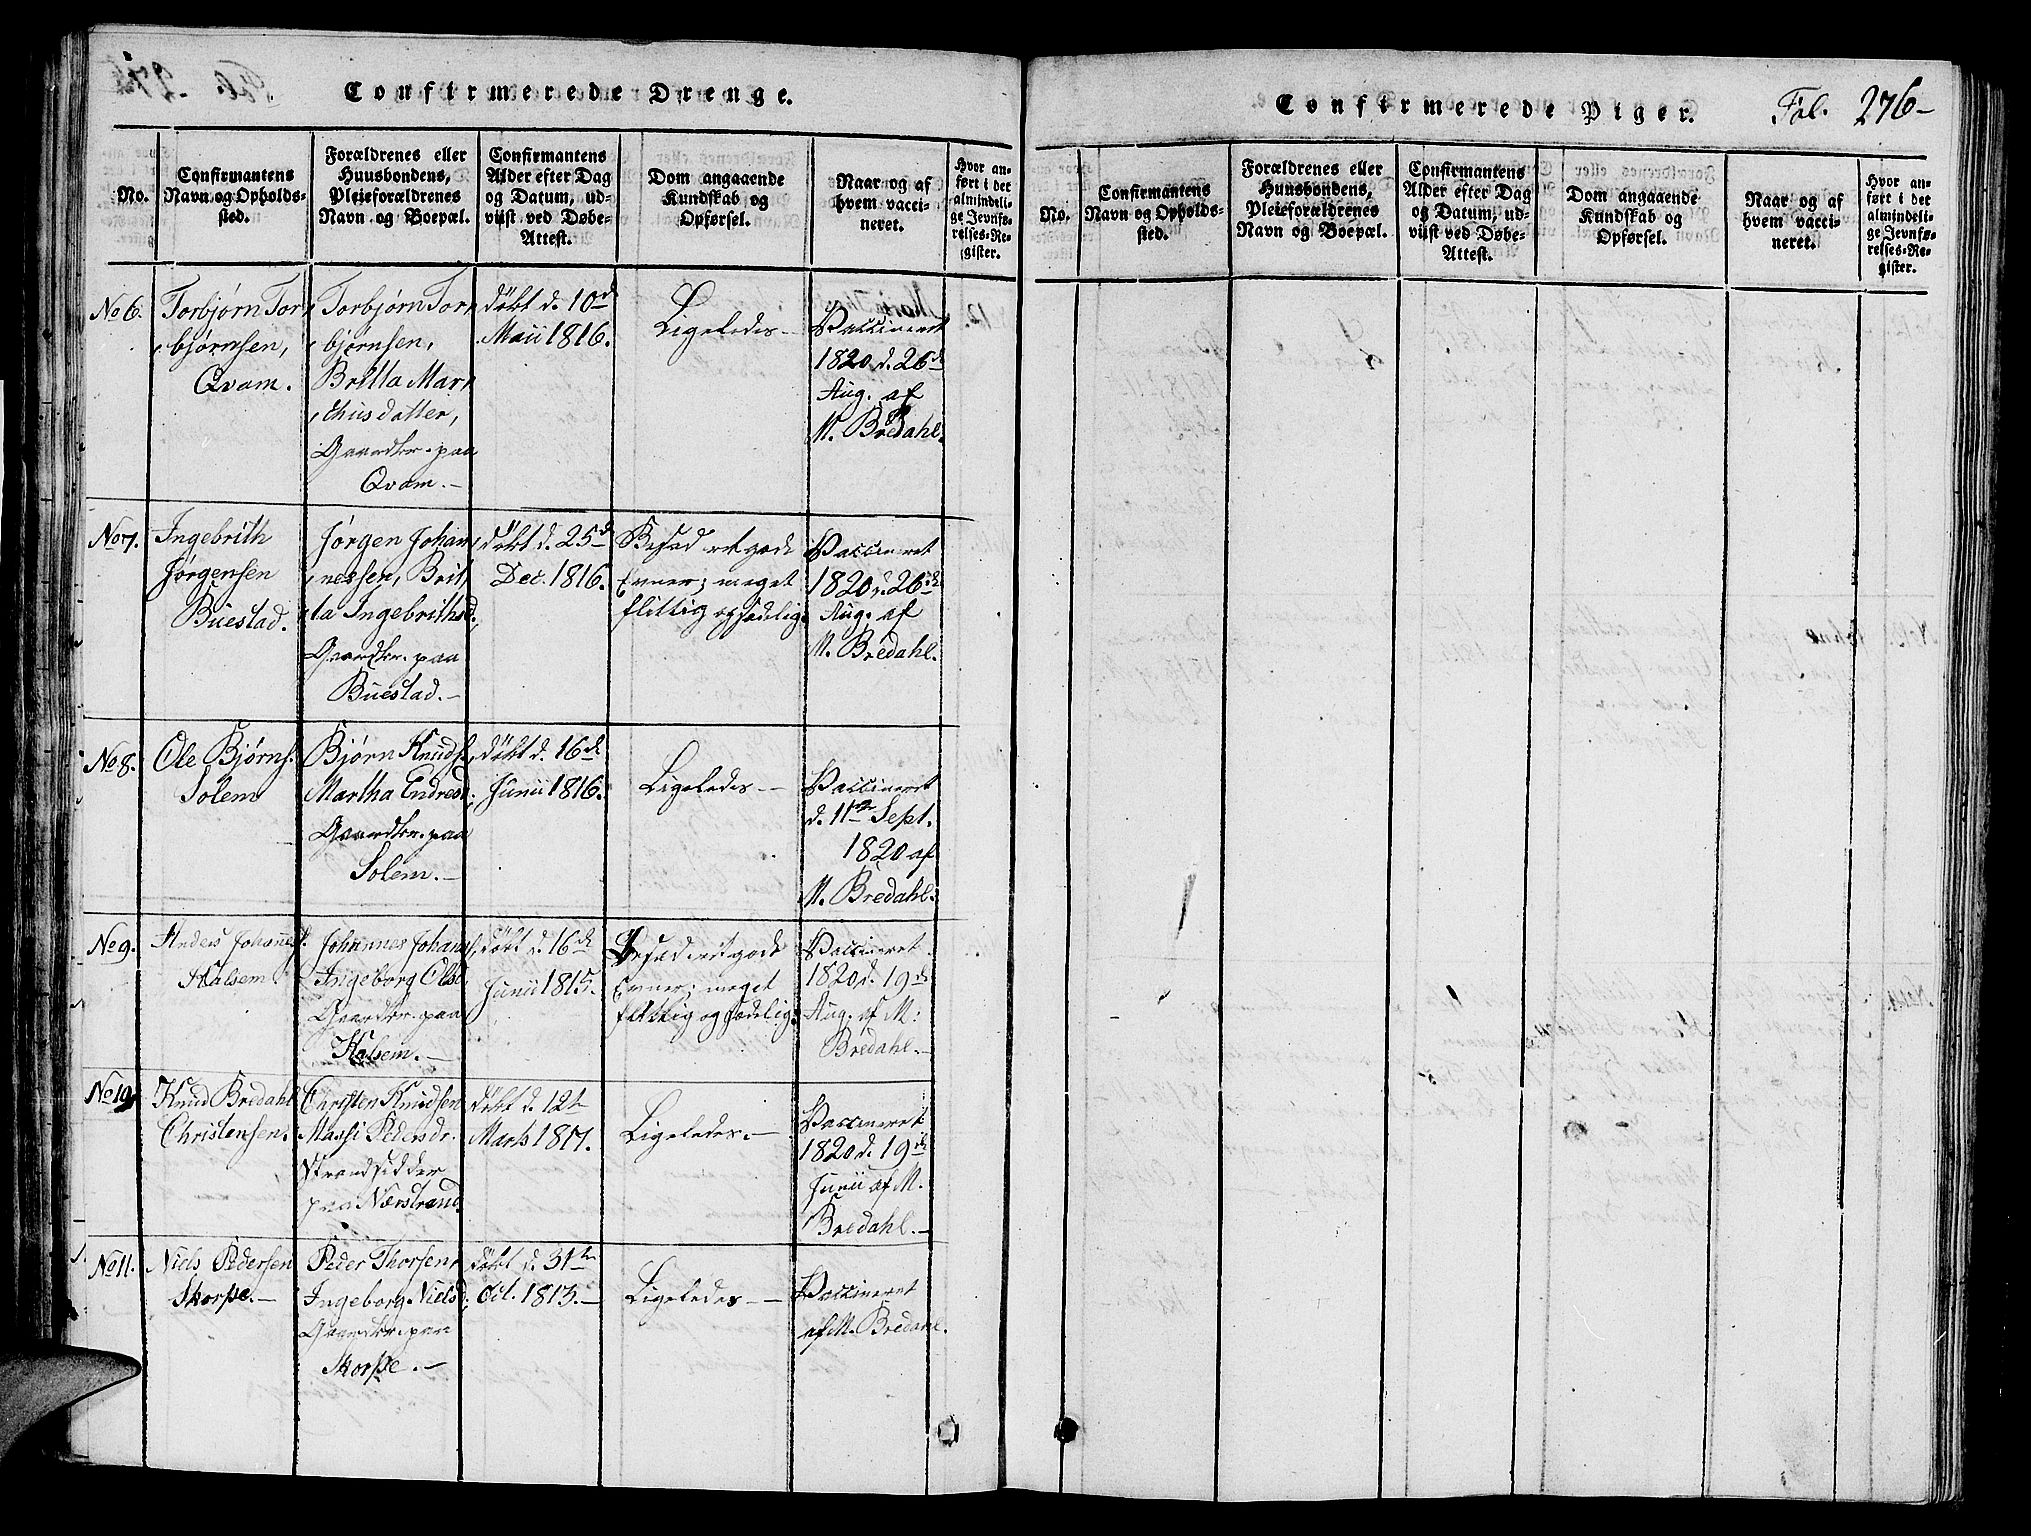 Confirmerede Drenge.
No.
Confirmantens
Navn og Opholds-
sted.
Forældrenes eller
Huusbondens,
Pleieforældrenes
Navn og Boepæl.
Confirmantens
Alder efter Dag
og Datum, ud-
viist ved Døbe-
Attest.
Dom angaaende
Kundskab og
Opførsel.
Naar og af
hvem vacci-
neret.
Hvor an-
ført i det
almindeli-
ge Jevnfø-
relses-Re-
gister.
No 6.
Torbjørn Tor
bjørnsen,
Qvam.
Torbjørn Tor
bjørnsen,
Britta Mar
thusdatter,
Gaardbr. paa
Qvam.-
døbt d. 10d
Maii 1816.
Ligeledes-
Vaccineret
1820 d. 26d
Aug. af
M. Bredahl.
No 7.
Ingebrith
Jørgensen
Buestad.
Jørgen Johan
nessen, Brit
ta Ingebrithsd.,
Gaardbr. paa
Buestad.-
døbt d. 25d
Dec. 1816.
Besad ret gode
Evner; meget
flittig og sædelig.
Vaccineret
1820 d. 26d
Aug. af
M. Bredahl.
No 8.
Ole Bjørns.
Solem
Bjørn Knuds.,
Martha Endresd.,
Gaardbr. paa
Solem.-
døbt d. 16d
Junii 1816.
Ligeledes.-
Vaccineret
d. 11te Sept.
1820 af
M. Bredahl.
No 9.
Anders Johannes.
Halsem
Johannes Johans.,
Ingeborg Olsd.
Gaardbr. paa
Halsem.-
døbt d. 16d
Junii 1815.
Besad ret gode
Evner; meget
flittig og sædelig.
Vaccineret
1820 d. 19d
Aug. af M:
Bredahl.-
No 10.
Knud Bredahl
Christensen.
Christen Knudsen
Massi Pedersdr.
Strandsidder
paa Nærstrand
døbt d. 12t
Marts 1817.
Ligeledes.-
Vaccineret
1820 d. 19d
Junii af M.
Bredahl.-
No 11.
Niels Pedersen
Skorpe.-
Peder Thorsen,
Ingeborg Nielsd.,
Gaardbr. paa
Skorpe.-
døbt d. 31te
Oct. 1813.-
Ligeledes-
Vaccineret
af M. Bredahl.
Confirmerede Piger.
Fol. 276-
No.
Confirmantens
Navn og Opholds-
sted.
Forældrenes eller
Huusbondens,
Pleieforældrenes
Navn og Boepæl.
Confirmantens
Alder efter Dag
og Datum, ud-
viist ved Døbe-
Attest.
Dom angaaende
Kundskab og
Opførsel.
Naar og af
hvem vacci-
neret.
Hvor an-
ført i det
almindeli-
ge Jevnfø-
relses-Re-
gister.